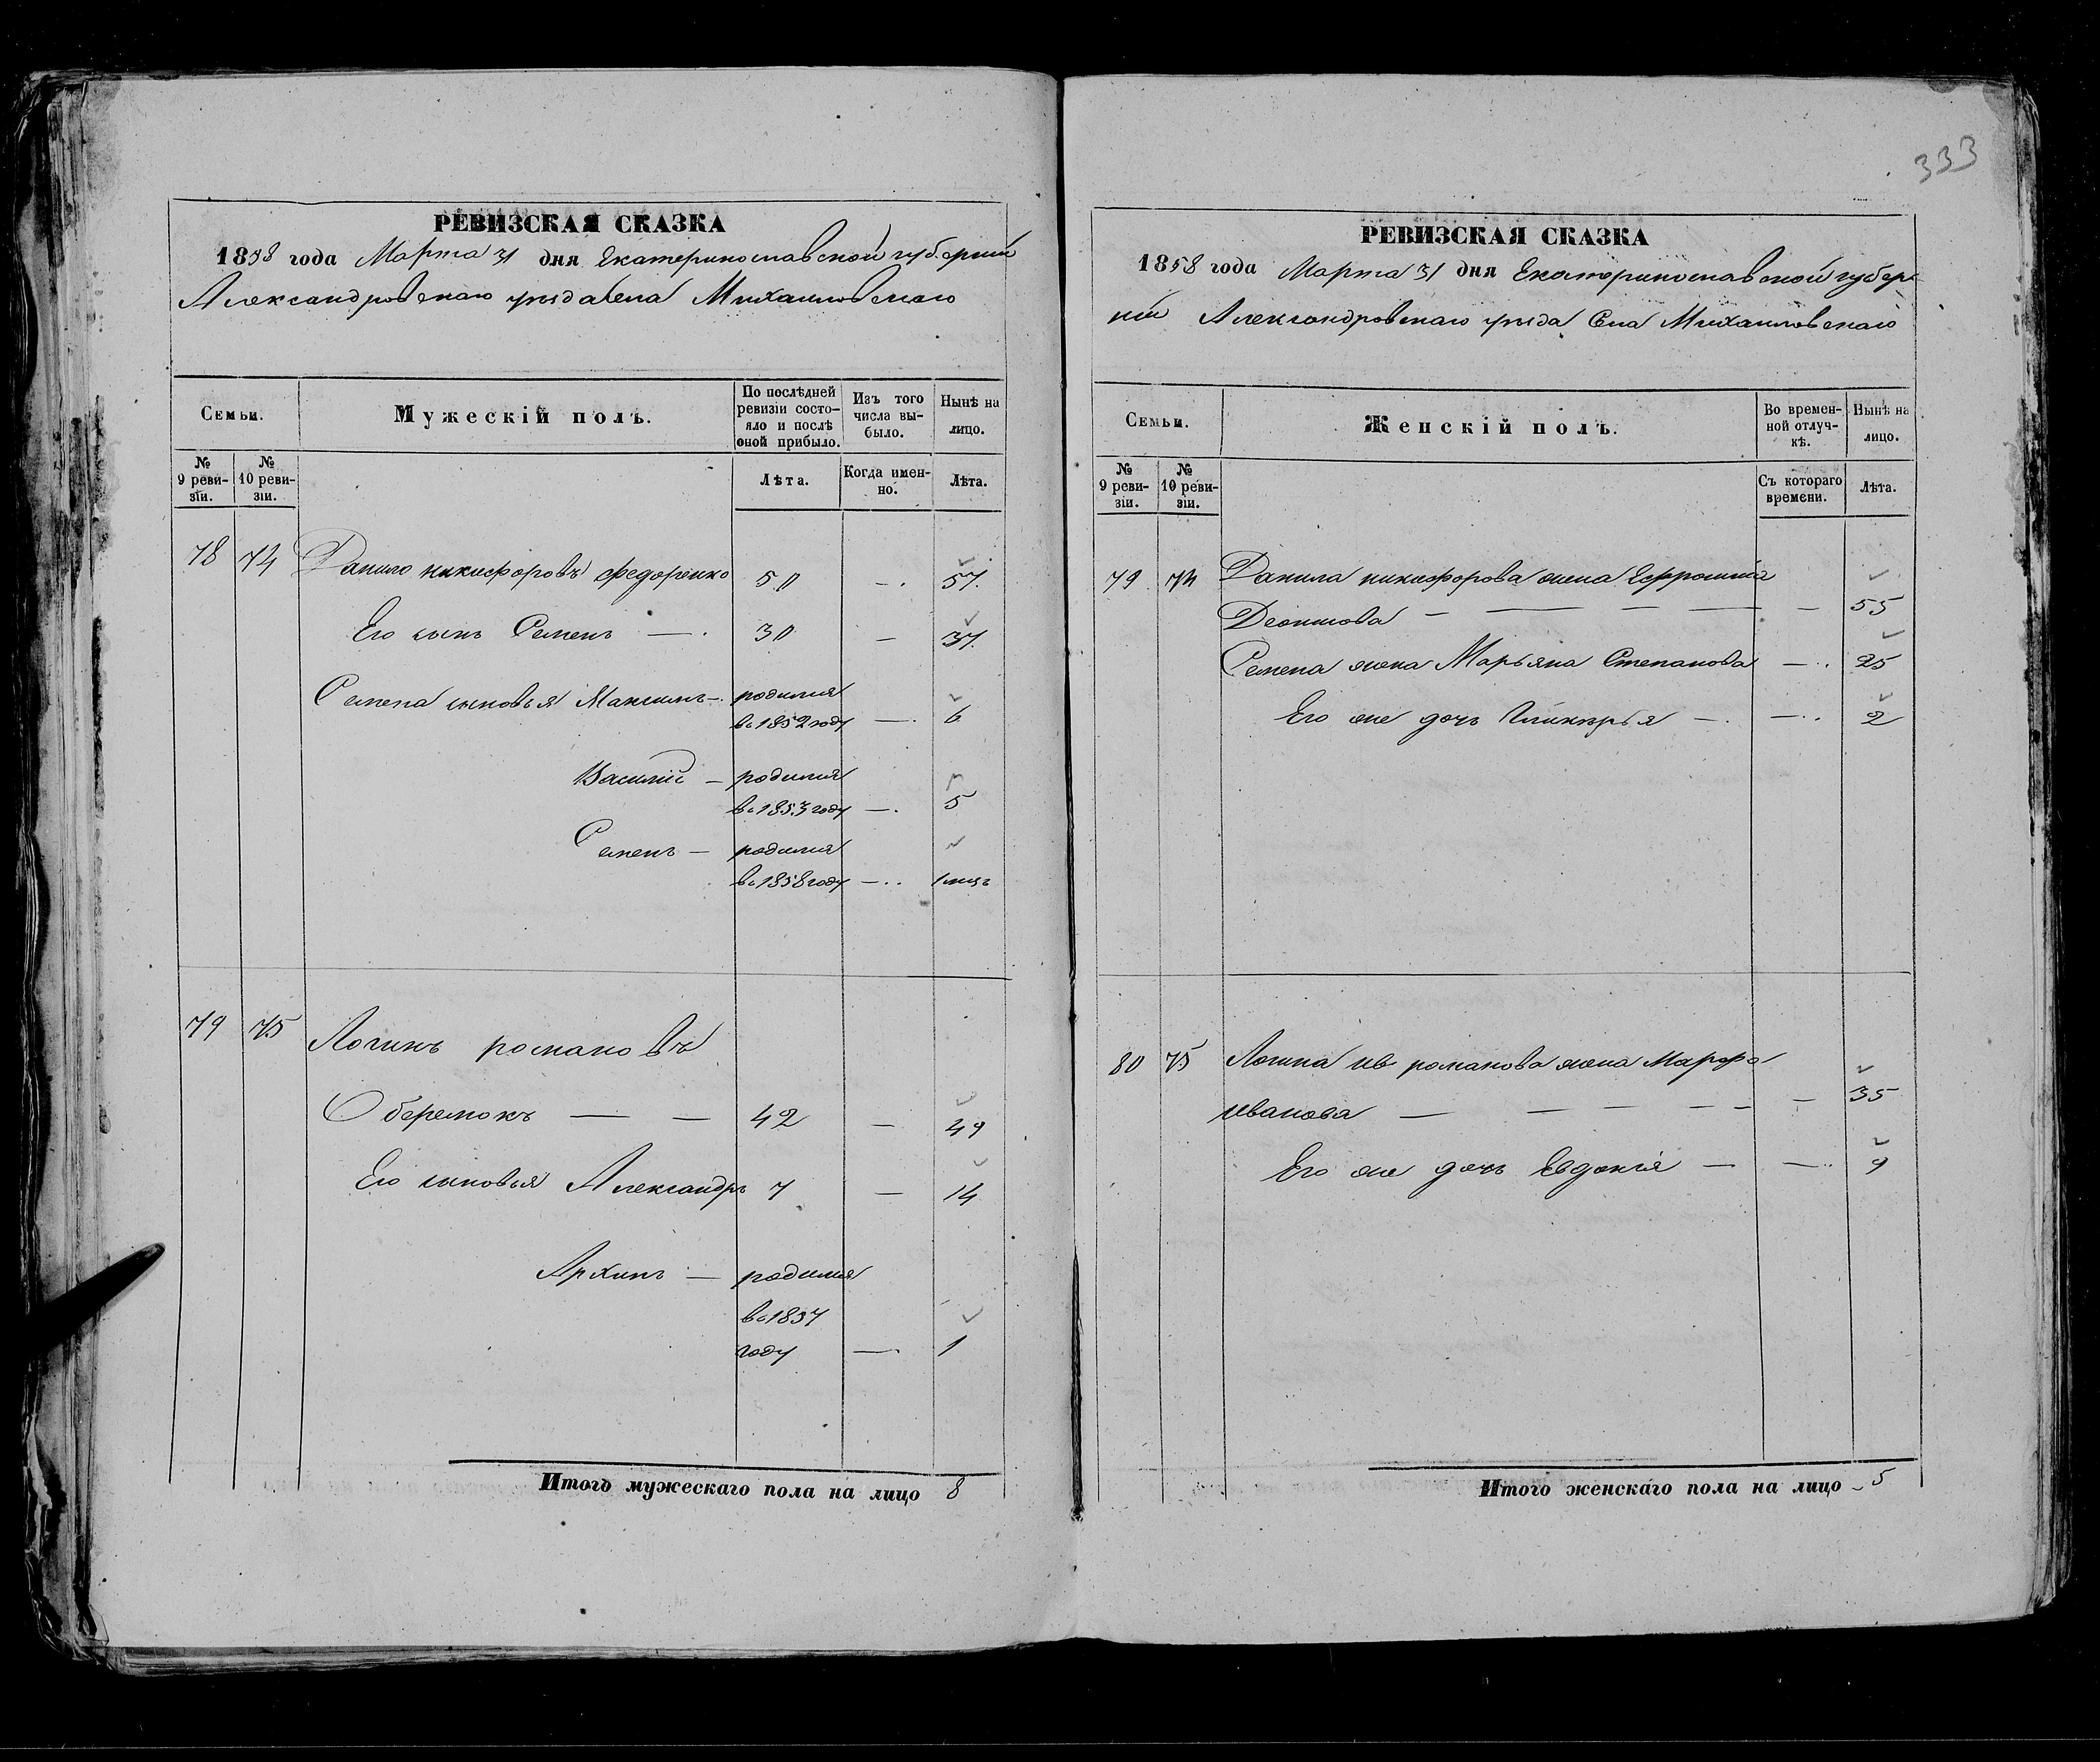 333
РЕВИЗСКАЯ СКАЗКА
1858 года Марта 31 дня Екатеринославской губерніи
Александровскаго уѣзда села Михаиловскаго
Семьи.
Мужескій полъ.
По послѣдней ревизіи состо-яло и послѣ оной прибыло.
Изъ того числа вы-было.
Нынѣ на лицо.
№ 9 реви-зіи.
№ 10 реви-зіи.
Лѣта.
Когда имен-но.
Лѣта.
78 74 Данило никифоровъ федоренко 50 — 57.
Его сынъ Семенъ — 30 — 37.
Семена сыновья Максимъ — родился
въ 1852 году — 6
Василій — родился
въ 1853 году — 5
Семенъ — родился
въ 1858 году — 1 мцъ
79 75 Логинъ романовъ
Оберемокъ — — 42 — 49
Его сыновья Александръ 7 — 14
Архипъ — родился
въ 1857
году — 1
Итого мужескаго пола на лицо 8
РЕВИЗСКАЯ СКАЗКА
1858 года Марта 31 дня Екатеринославской губер
ніи Александровскаго уѣзда Села Михаиловскаго
Семьи.
Женскій полъ.
Во времен-ной отлуч-кѣ.
Нынѣ на лицо.
№ 9 реви-зіи.
№ 10 реви-зіи.
Съ котораго времени.
Лѣта.
79 74 Данила никифорова жена Ефросинія
— — — — — 55
Семена жена Марьяна Степанова — 25
Его же дочь — — 2
80 75 Логина ив романова жена Марфа
иванова — — — — — — 35
Его же дочь Евдокія — — 9
Итого женскаго пола на лицо 5